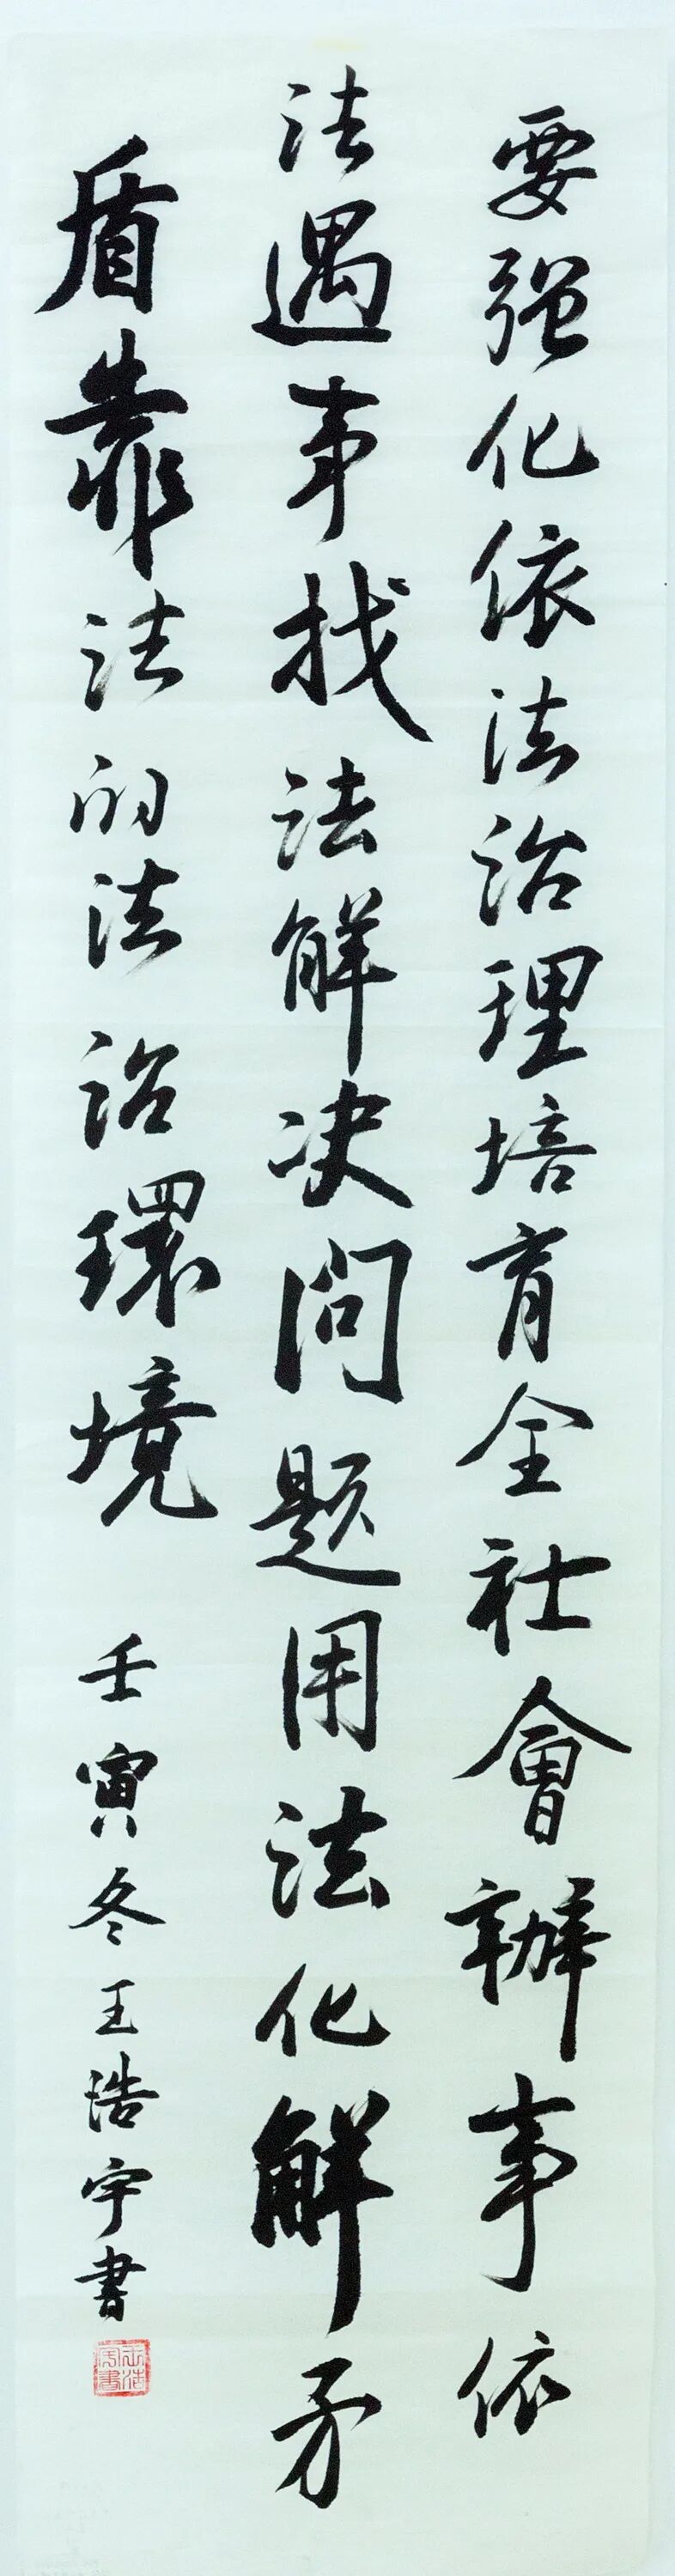 要强化依法治理培育全社會辦事依
法遇事找法解决问题用法化解矛
盾靠法的法治環境
壬寅冬王浩宇書